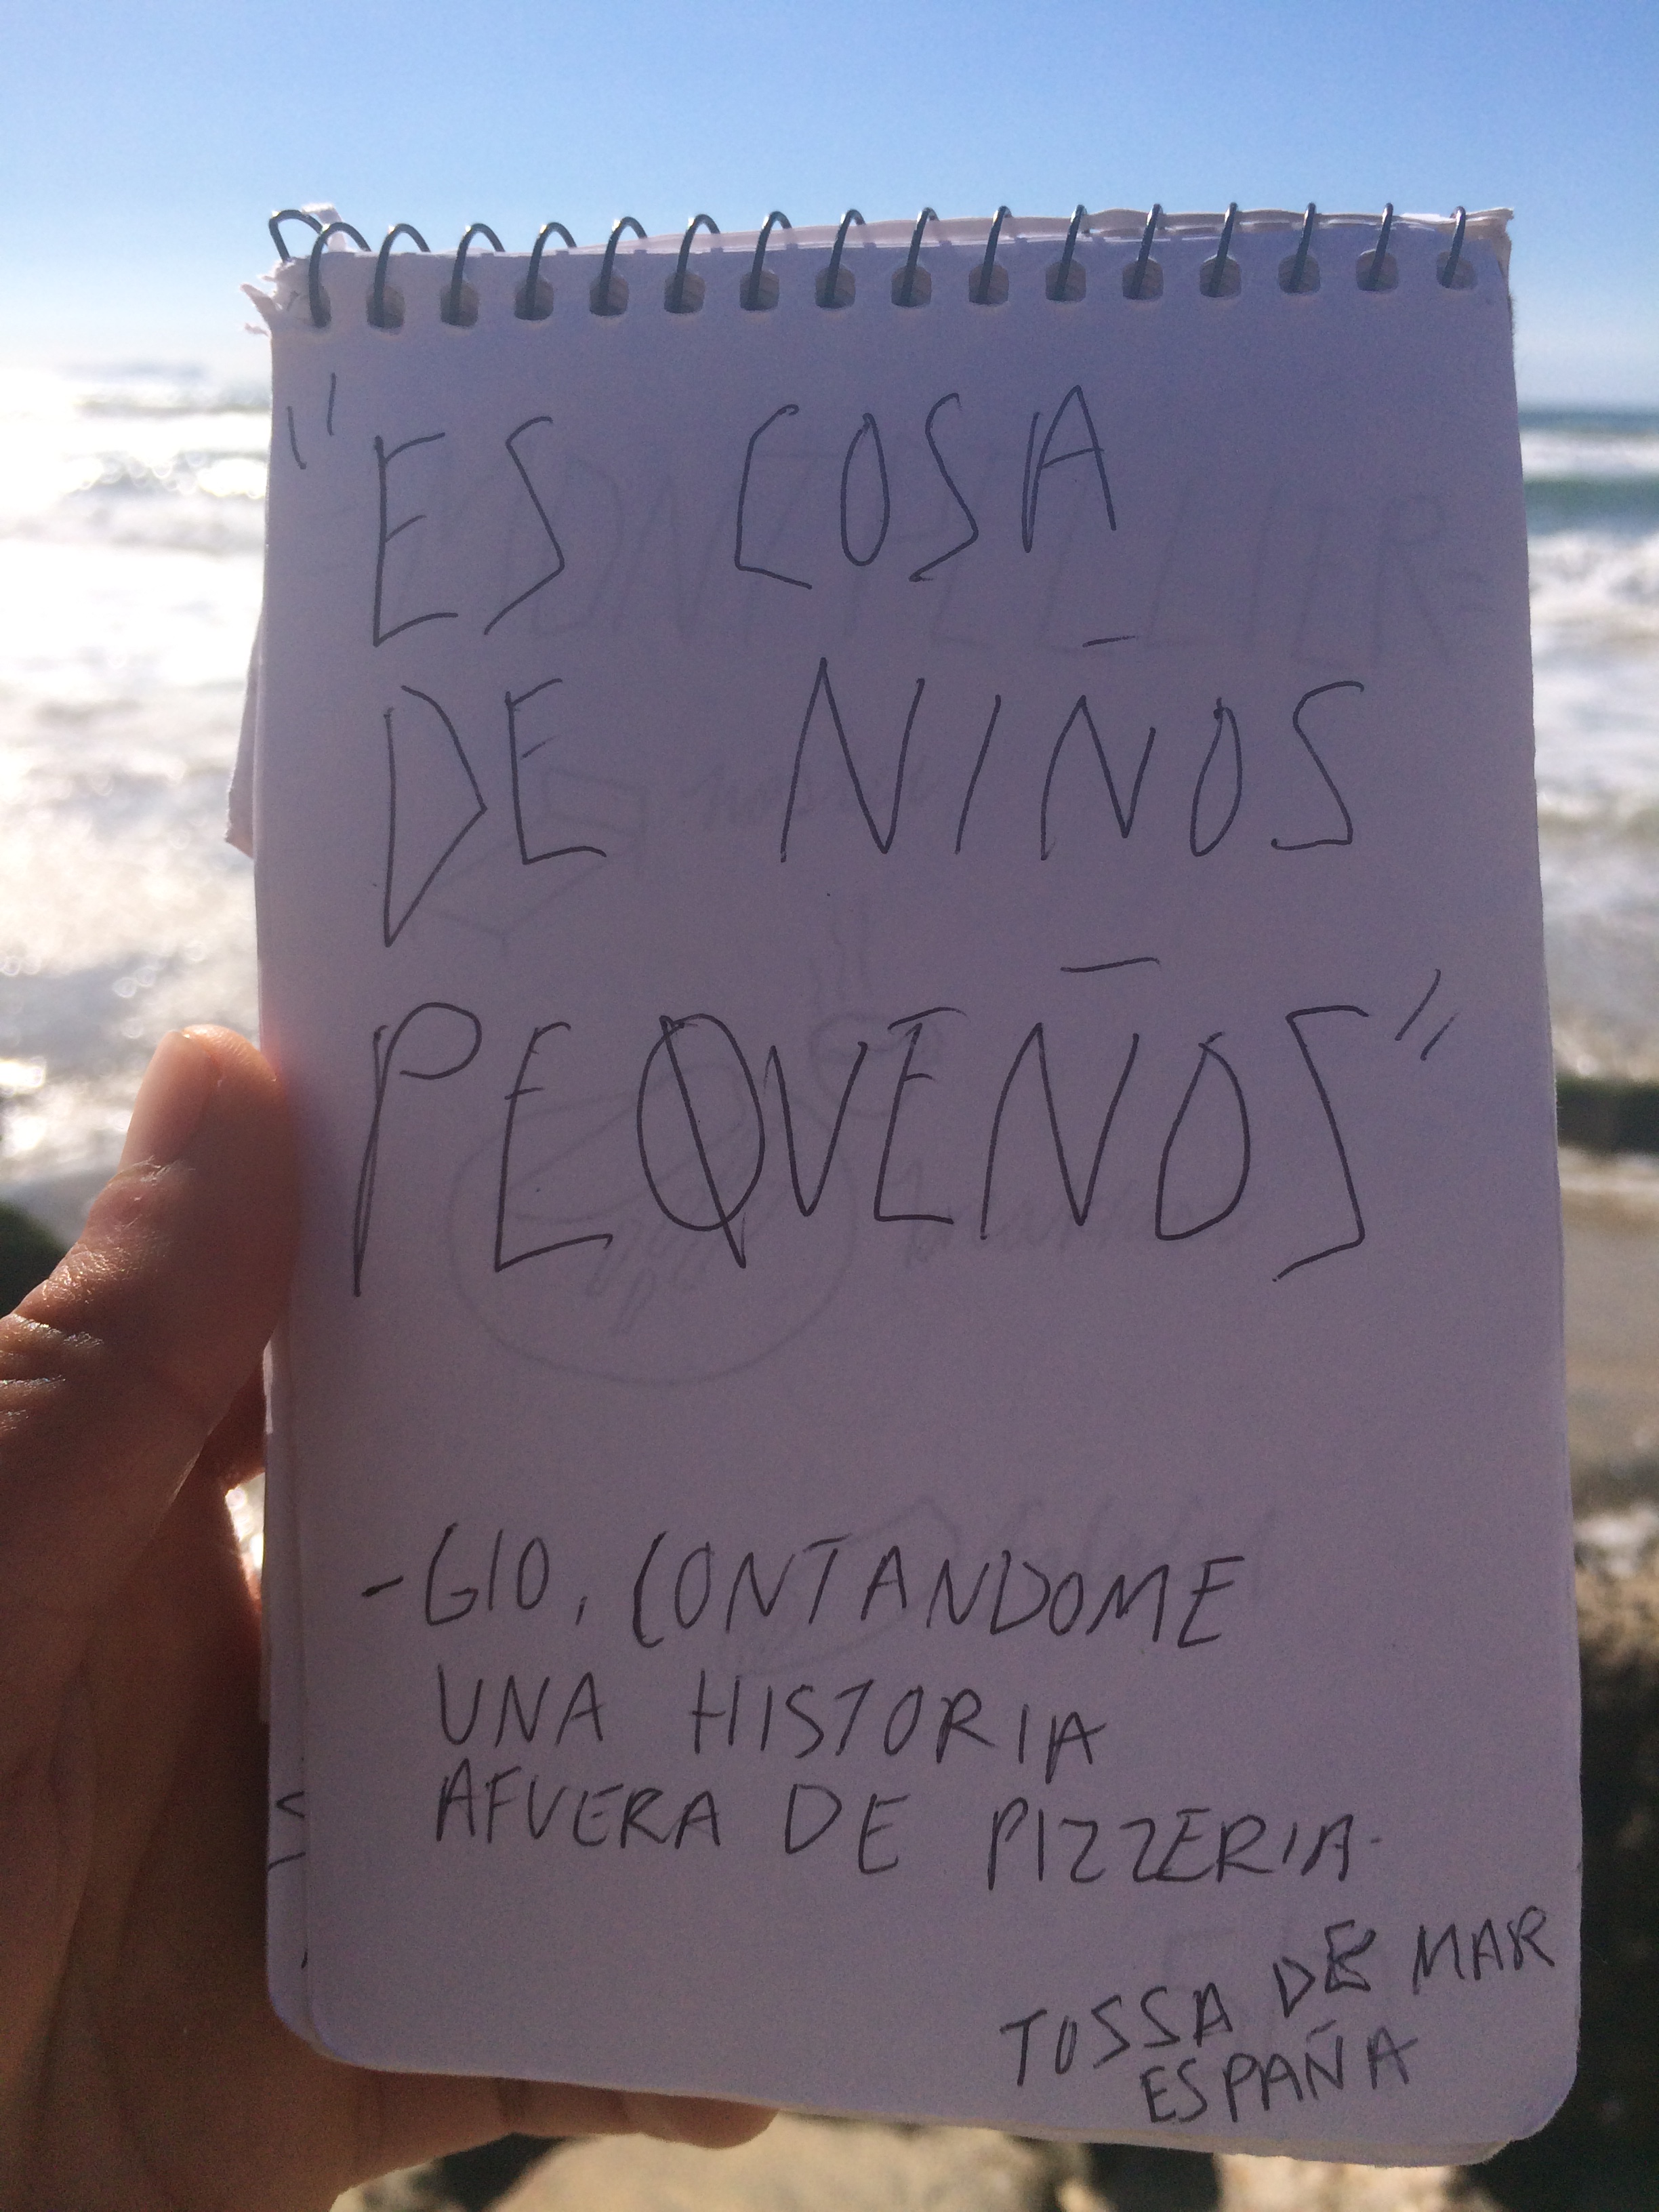 "ES COSA
DE NIÑOS
PEQUEÑOS"
-GIO, CONTANDOME
UNA HISTORIA
AFUERA DE PIZZERIA.
TOSSA DE MAR
ESPAÑA